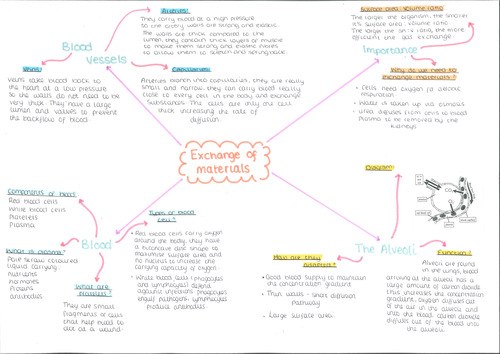 Arteries:
They carry blood at a high pressure
so the artery walls are strong and elastic.
The walls are thick compared to the
lumen, they contain thick layers of muscle
to make them strong and elastic fibres
to allow them to stretch and spring back.
Blood
vessels
Veins:
Veins take blood back to
the heart at a low pressure
so the walls do not need to be
very thick. They have a large
lumen and valves to prevent
the backflow of blood.
Capillaries:
Arteries branch into capillaries, they are really
small and narrow, they can carry blood really
close to every cell in the body and exchange
substances. The cells are only one cell
thick increasing the rate of
diffusion.
Surface area : volume ratio
The larger the organism, the smaller
it's surface area : volume ratio.
The larger the SA:V ratio, the more
efficient the gas exchange
Importance
Why do we need to
exchange materials?
• Cells need oxygen for aerobic
respiration.
• Water is taken up via osmosis
• Urea diffuses from cells to blood
plasma to be removed by the
kidneys
Exchange of
materials
Components of blood:
Red blood cells
White blood cells
Platelets
Plasma
What is plasma?
Pale straw coloured
liquid carrying:
nutrients
hormones
proteins
antibodies
Blood
What are
platelets?
They are small
fragments of cells
that help blood to
clot at a wound.
Types of blood
cell?
• Red blood cells carry oxygen
around the body, they have
a biconcave disc shape to
maximise surface area and
no nucleus to increase the
carrying capacity of oxygen.
• White blood cells (phagocytes
and lymphocytes) defend
against infection. Phagocytes
engulf pathogens. Lymphocytes
produce antibodies.
Diagram:
The Alveoli
How are they
adapted?
• Good blood supply to maintain
the concentration gradient
• Thin walls - short diffusion
pathway
• Large surface area
Function?
Alveoli are found
in the lungs, blood
arriving at the alveoli has a
large amount of carbon dioxide
thus increases the concentration
gradient. Oxygen diffuses out
of the air in the alveoli and
into the blood. Carbon dioxide
diffuses out of the blood into
the alveoli.